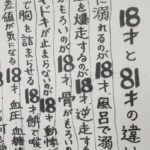 18才と81才の違い
に溺れるのが18才 風呂で溺
を爆走するのが18才 逆走す
がもろいのが18才 骨がもろい
ドキが止まらないのが18才 動悸
で胸を詰まらせる18才 餅で喉
差値が気になる18才 血圧 血糖